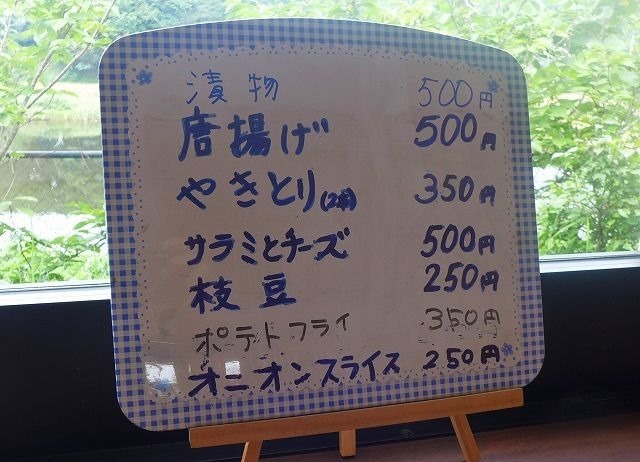 漬物 500円
唐揚げ 500円
やきとり(2本) 350円
サラミとチーズ 500円
枝豆 250円
ポテトフライ 350円
オニオンスライス 250円